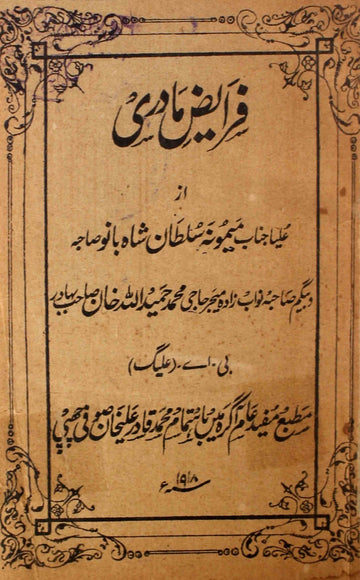 فرایض مادری
از
علیا جناب میمونہ سلطان شاہ بانو صاحبہ
دبیگم صاحبہ نواب زادہ میجر حاجی محمد حمید اللہ خان صاحب بہادر
بی-اے-(علیگ)
مطبع مفید عام آگرہ میں باہتمام محمد قادر علیخان صوفی چھپی
۱۹۱۸ء